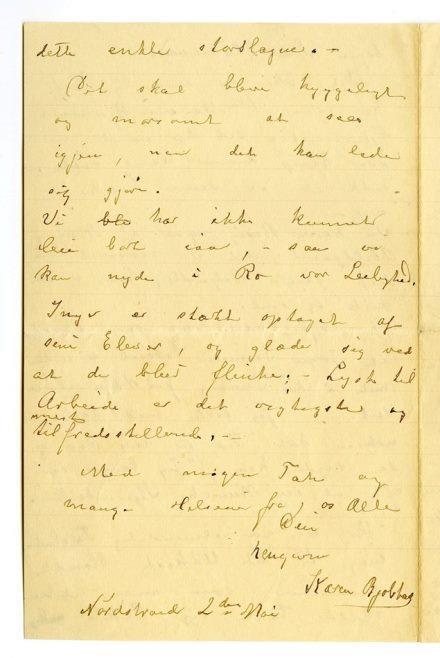 dette enkle storslagne. —
Det skal blive hyggeligt
og morsomt at sees
igjen, naar det kan lade
sig gjøre.
Vi har ikke kunnet
leie bort iaar, – saa vi
kan nyde i Ro vor Leilighed.
Inga er stærkt optaget af
sine Elever, og glæder sig ved
at de blier flinke; – Lyst til
Arbeide er det vigtigste og
mest
tilfredsstillende. —
Med megen Tak og
mange Hilsener fra os Alle
Din
hengivne
Karen
Nordstrand 2den Mai